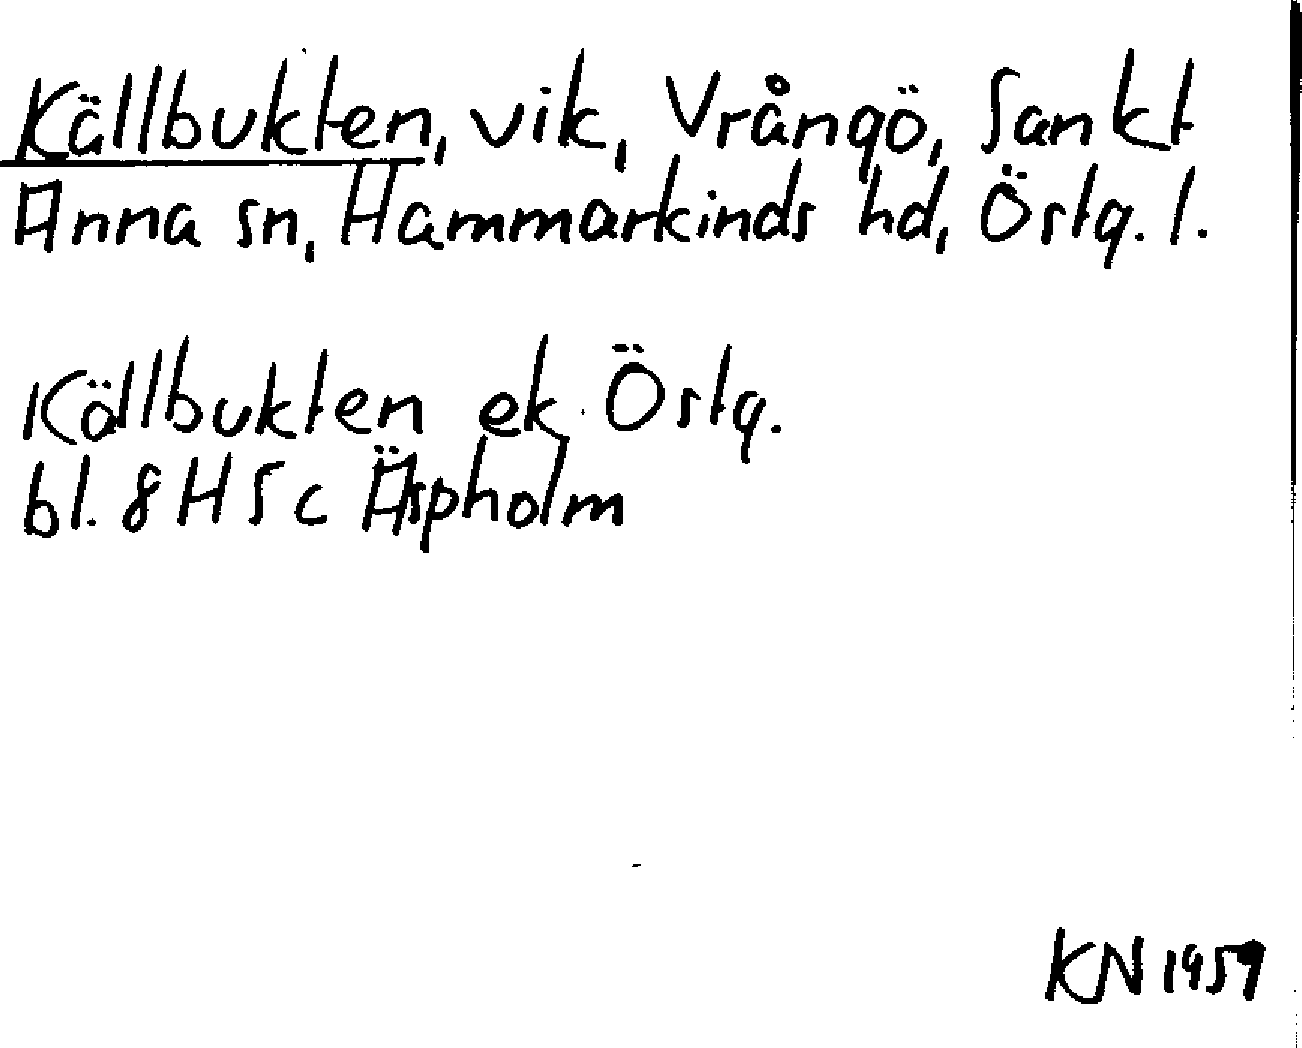 Källbukten, vik, Vrångö, Sankt
Anna sn, Hammarkinds hd, Östg. l.
Källbukten ek. Östg.
bl. 8H5c Äspholm
KN 1959